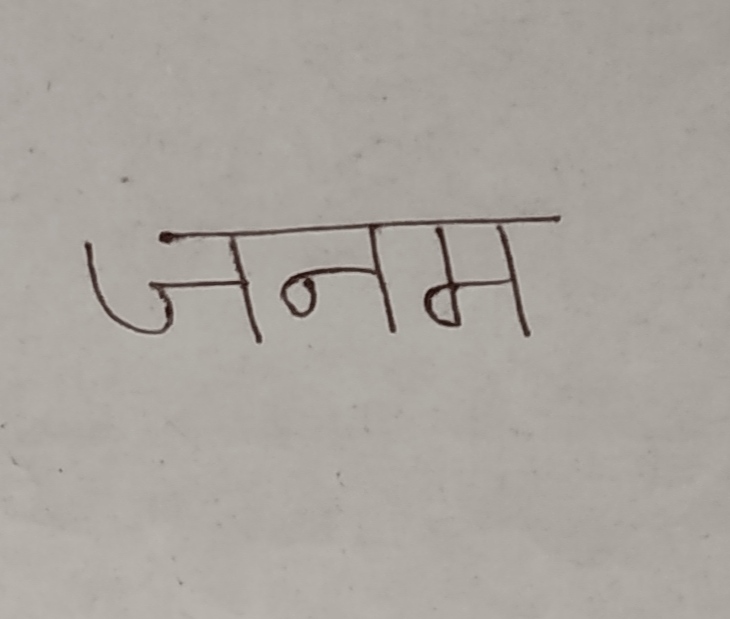 जनम